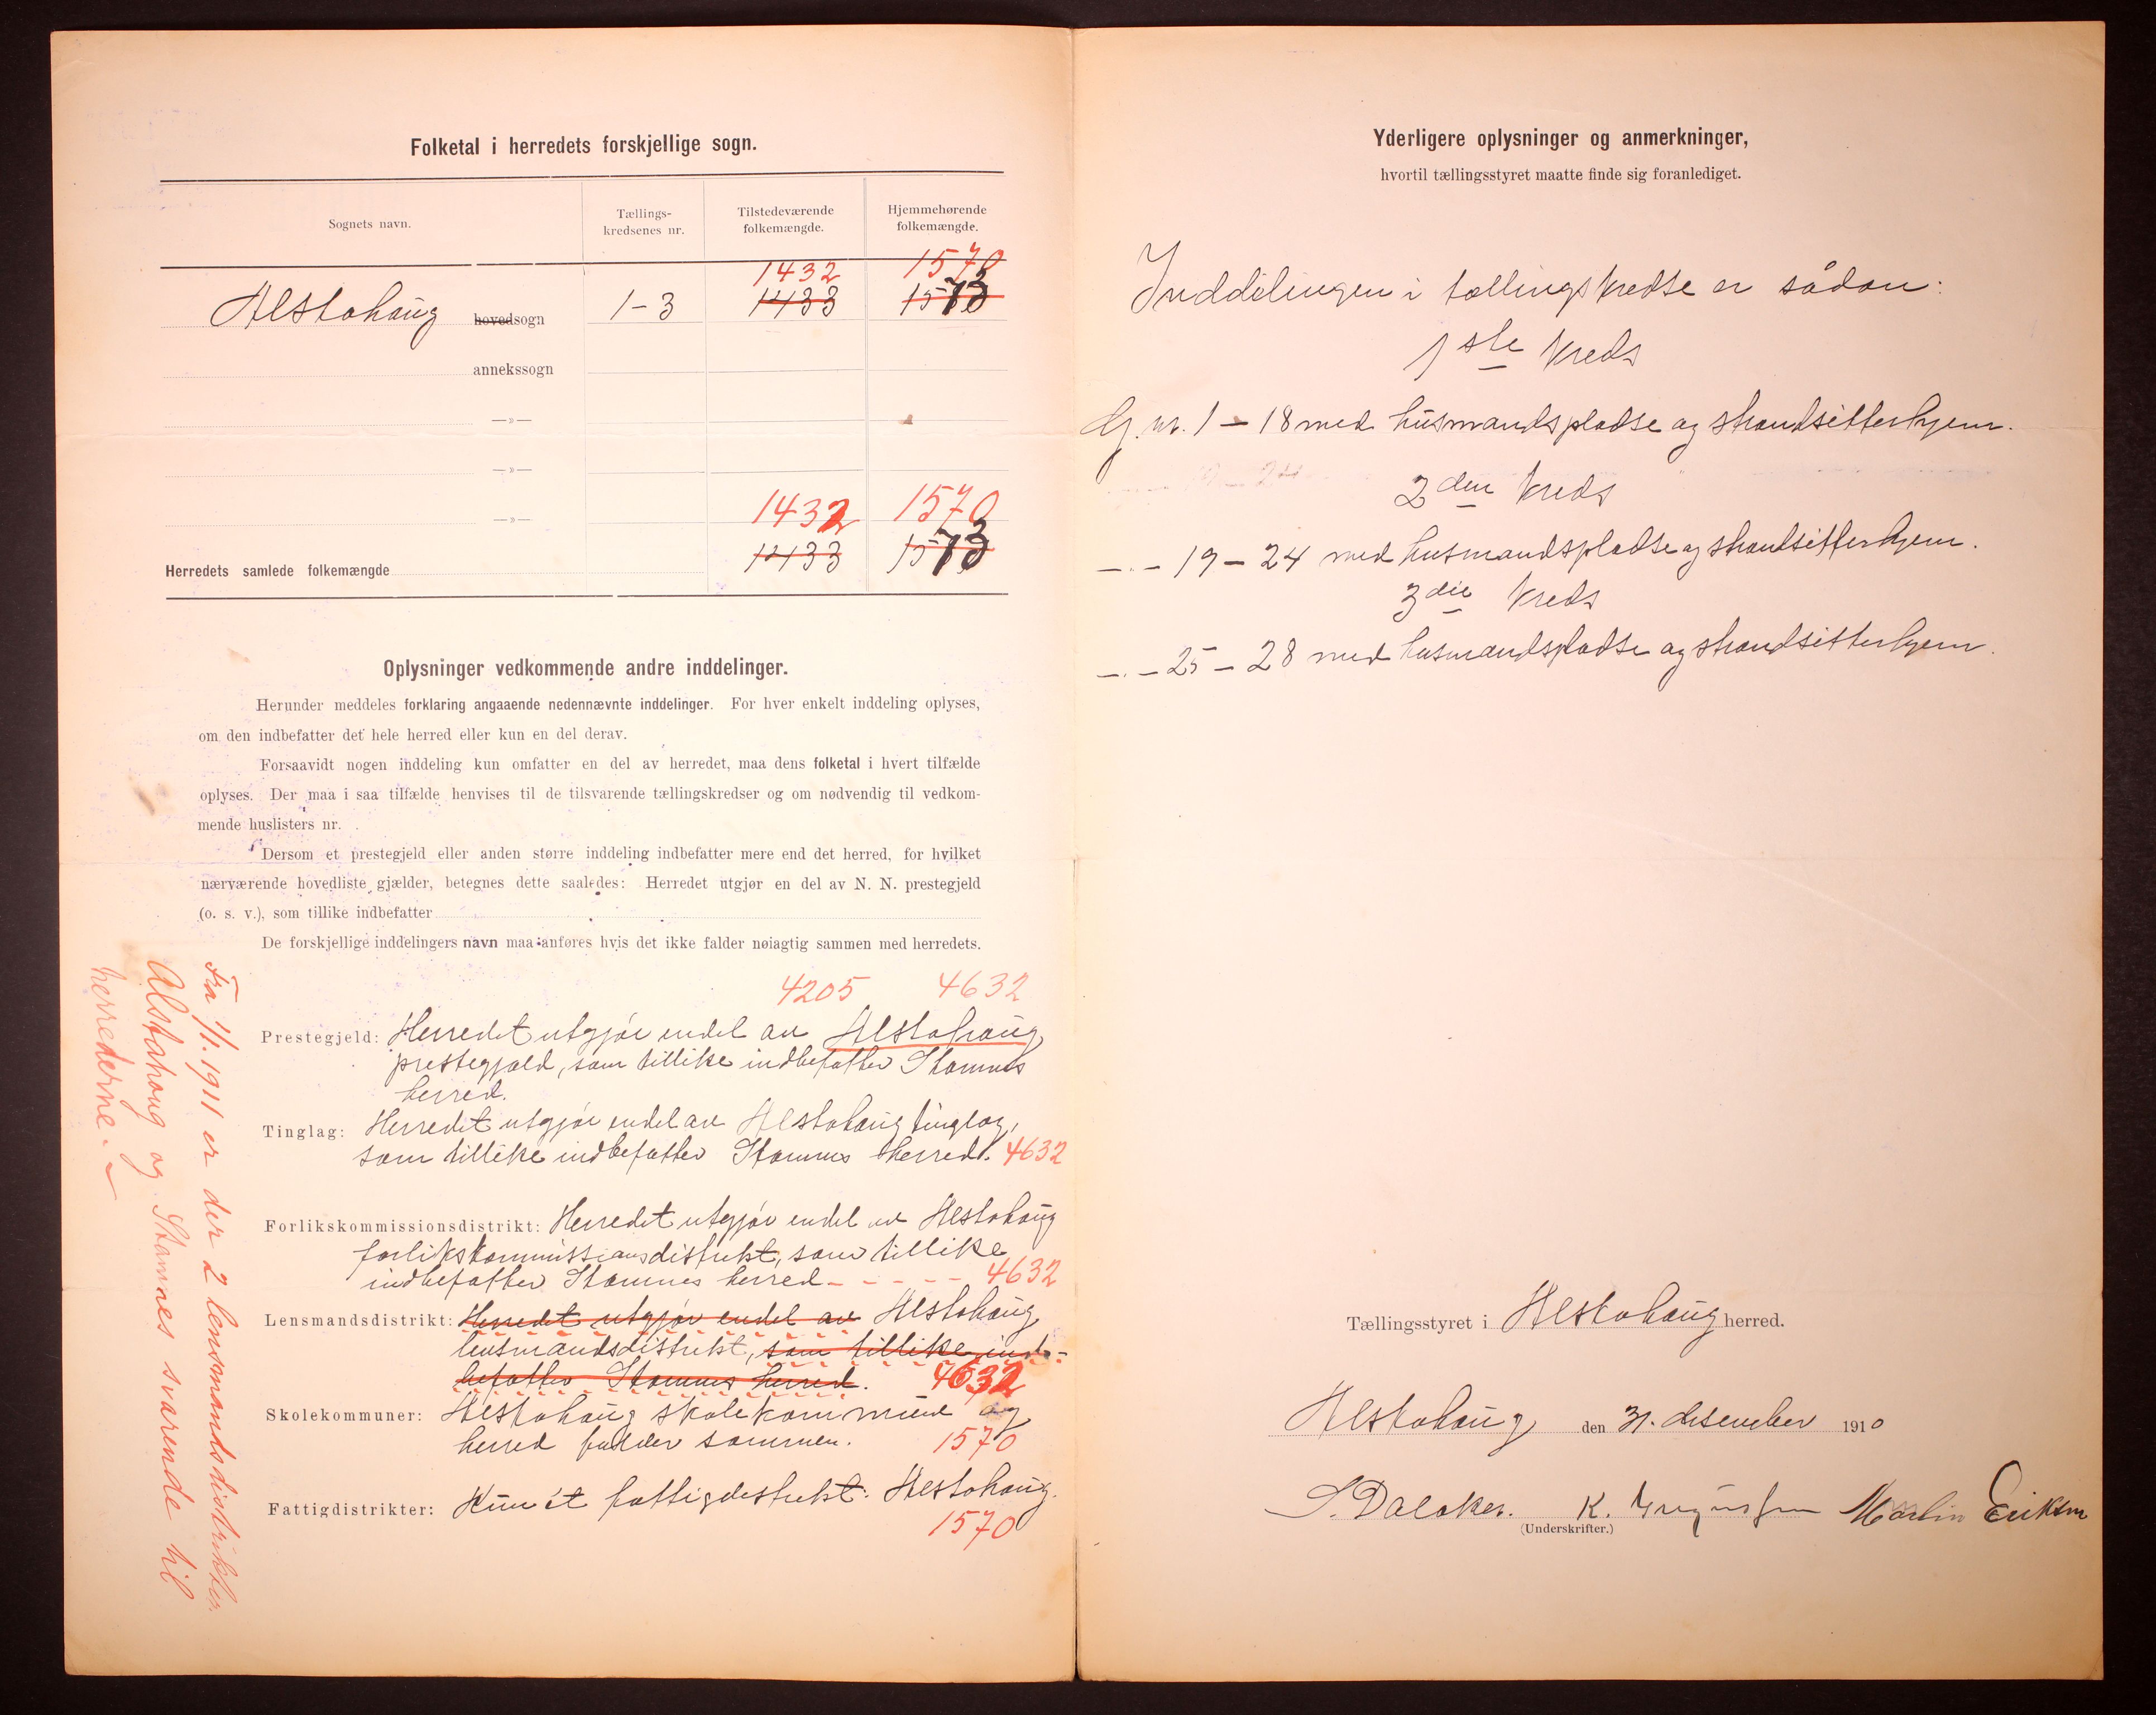 Folketal i herredets forskjellige sogn.
Sognets navn.
Tællings-
kredsenes nr.
Tilstedeværende
folkemængde.
Hjemmehørende
folkemængde.
1432 1570
Alstahaug hovedsogn 1-3 1433 1573
annekssogn
—»—
—»—
—»—
1432 1570
Herredets samlede folkemængde 1433 1573
Oplysninger vedkommende andre inddelinger.
Herunder meddeles forklaring angaaende nedennævnte inddelinger. For hver enkelt inddeling oplyses,
om den indbefatter det hele herred eller kun en del derav.
Forsaavidt nogen inddeling kun omfatter en del av herredet, maa dens folketal i hvert tilfælde
oplyses. Der maa i saa tilfælde henvises til de tilsvarende tællingskredser og om nødvendig til vedkom-
mende huslisters nr.
Dersom et prestegjeld eller anden større inddeling indbefatter mere end det herred, for hvilket
nærværende hovedliste gjælder, betegnes dette saaledes: Herredet utgjør en del av N. N. prestegjeld
(o. s. v.), som tillike indbefatter
De forskjellige inddelingers navn maa anføres hvis det ikke falder nøiagtig sammen med herredets.
4205 4632
Prestegjeld: Herredet utgjør endel av Alstahaug
prestegjæld, som tillike indbefatter Stamnes
herred.
Tinglag: Herredet utgjør endel av Alstahaug tinglag,
som tillike indbefatter Stamnes herred. 4632
Forlikskommissionsdistrikt: Herredet utgjør endel av Alstahaug
forlikskommissionsdistrikt, som tillike
indbefatter Stamnes herred - - - - - 4632
Lensmandsdistrikt: Herredet utgjør endel av Alstahaug
lensmandsdistrikt, som tillike ind-
befatter Stamnes herred. 4632
Skolekommuner: Alstahaug skolekommune og
herred falder sammen. 1570
Fattigdistrikter: Kun ét fattigdistrikt: Alstahaug.
1570
Fra 1/1. 1911 er der 2 lensmandsdistrikter.
Alstahaug og Stamnes svarende til
herrederne. —
Yderligere oplysninger og anmerkninger,
hvortil tællingsstyret maatte finde sig foranlediget.
Inddelingen i tællingskredse er sådan:
1ste kreds
Gj. nr. 1 – 18 med husmandspladse og strandsitterhjem.
2den kreds
— . – 19 – 24 med husmandspladse og strandsitterhjem.
3die kreds
— . – 25 – 28 med husmandspladse og strandsitterhjem.
Tællingsstyret i Alstahaug herred.
Alstahaug den 31. desember 1910
S. Dalaker. K. Martin Eriksen
(Underskrifter.)